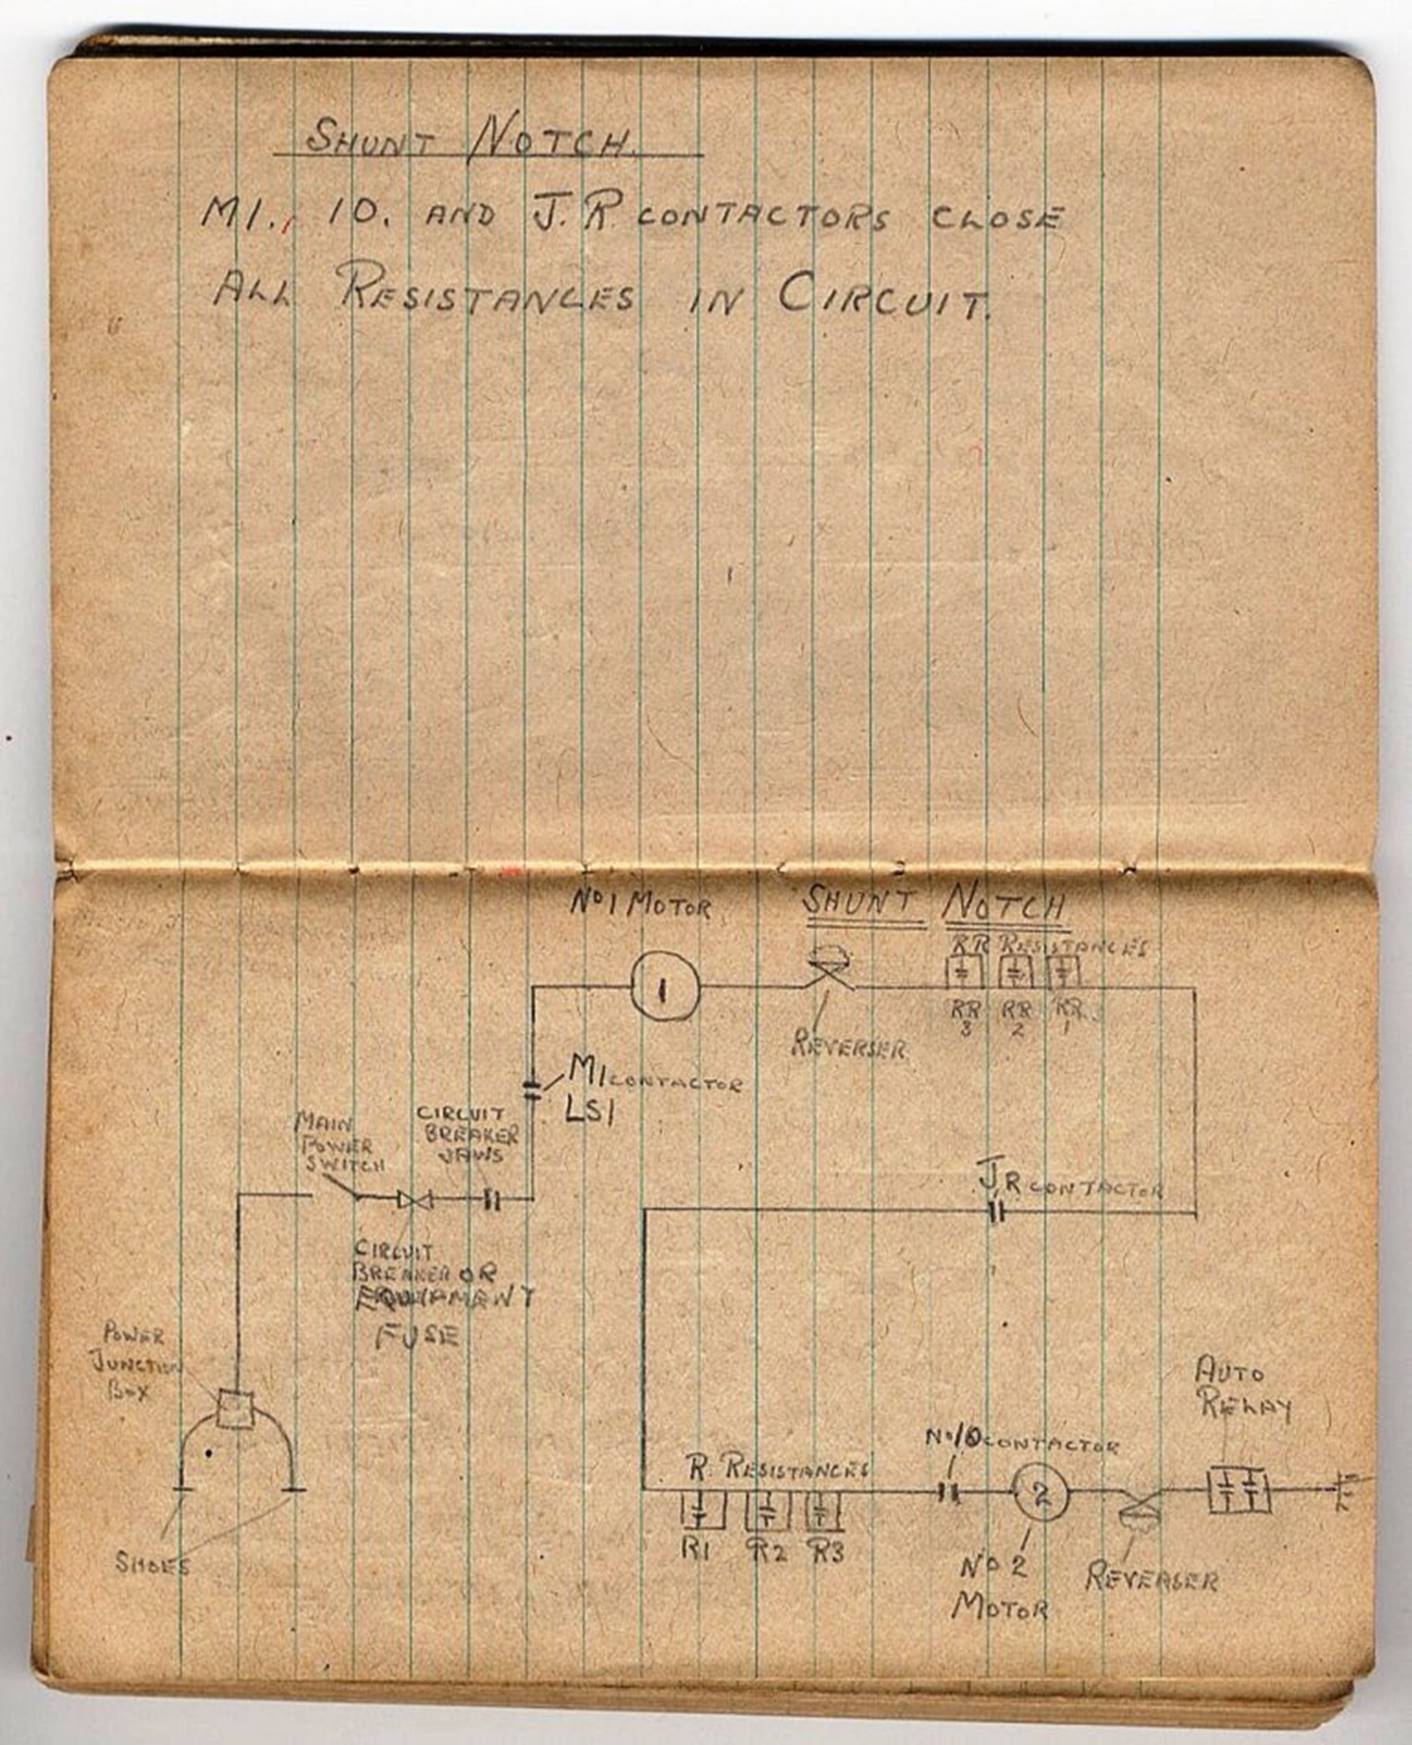 SHUNT NOTCH.
M1., 10. AND J.R CONTACTORS CLOSE
ALL RESISTANCES IN CIRCUIT.
No 1 MOTOR
SHUNT NOTCH
RR RESISTANCES
1
RR
3
RR
2
RR
1
REVERSER
M1 CONTACTOR
LS1
MAIN
POWER
SWITCH
CIRCUIT
BREAKER
JAWS
JR CONTACTOR
CIRCUIT
BREAKER OR
EQUIPMENT
FUSE
POWER
JUNCTION
BOX
AUTO
RELAY
No 10 CONTACTOR
R RESISTANCES
2
R1 R2 R3
SHOES
No 2
MOTOR
REVERSER
E